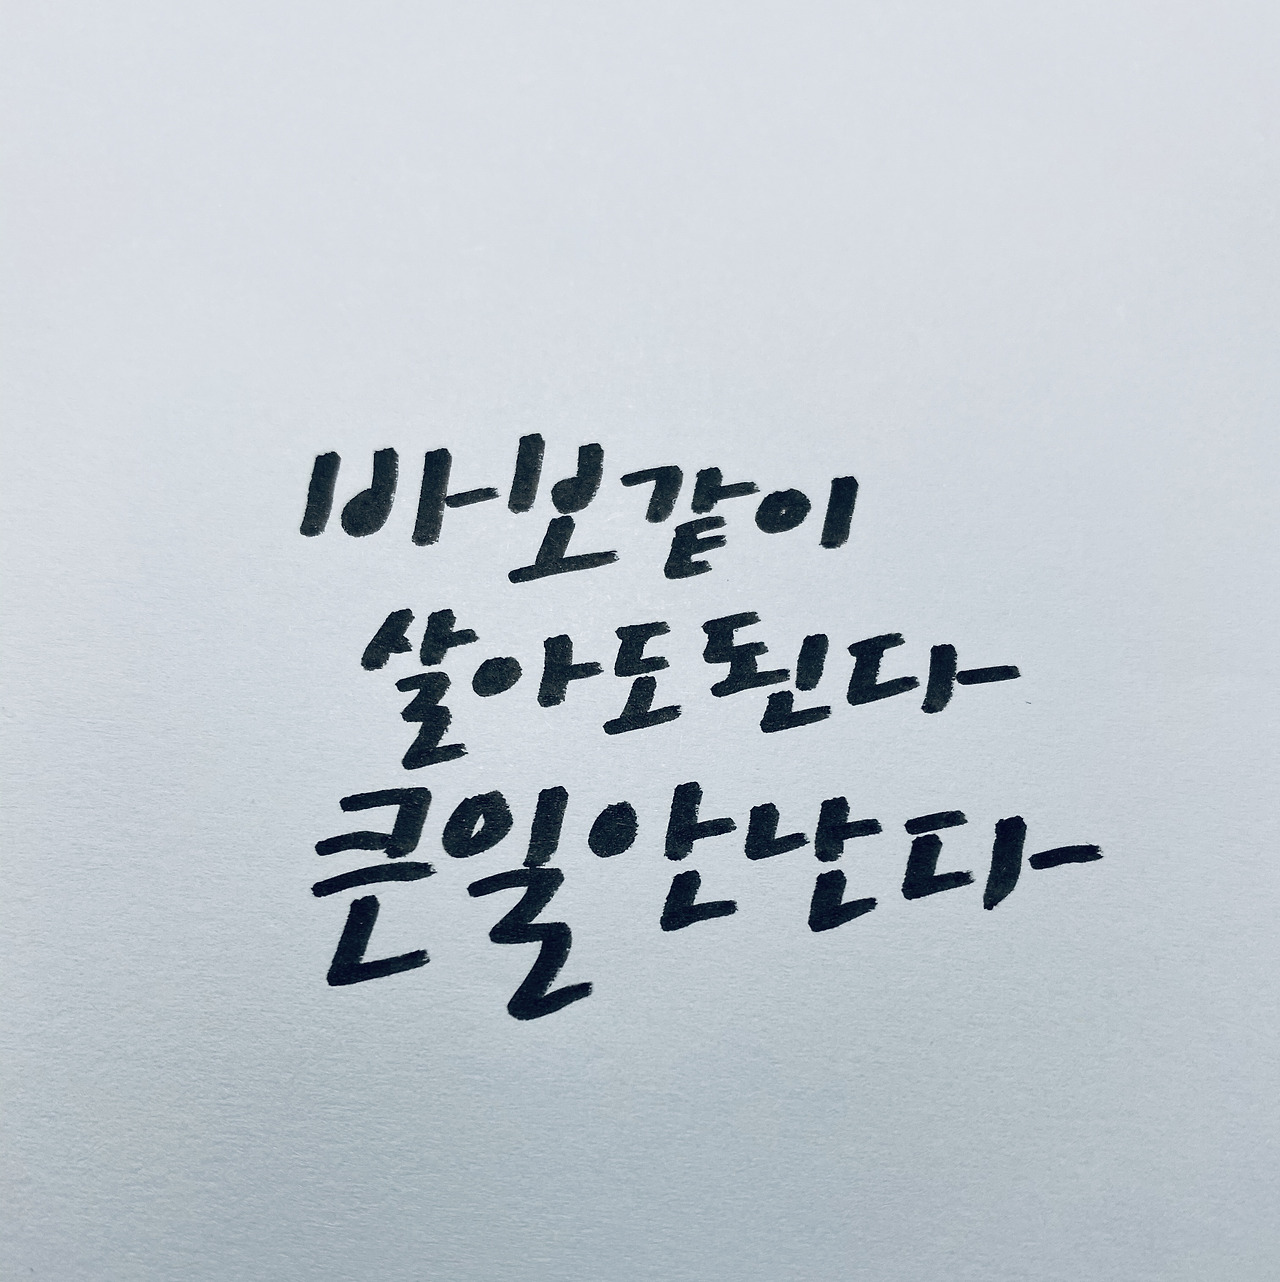 바보같이
살아도된다
큰일안난다